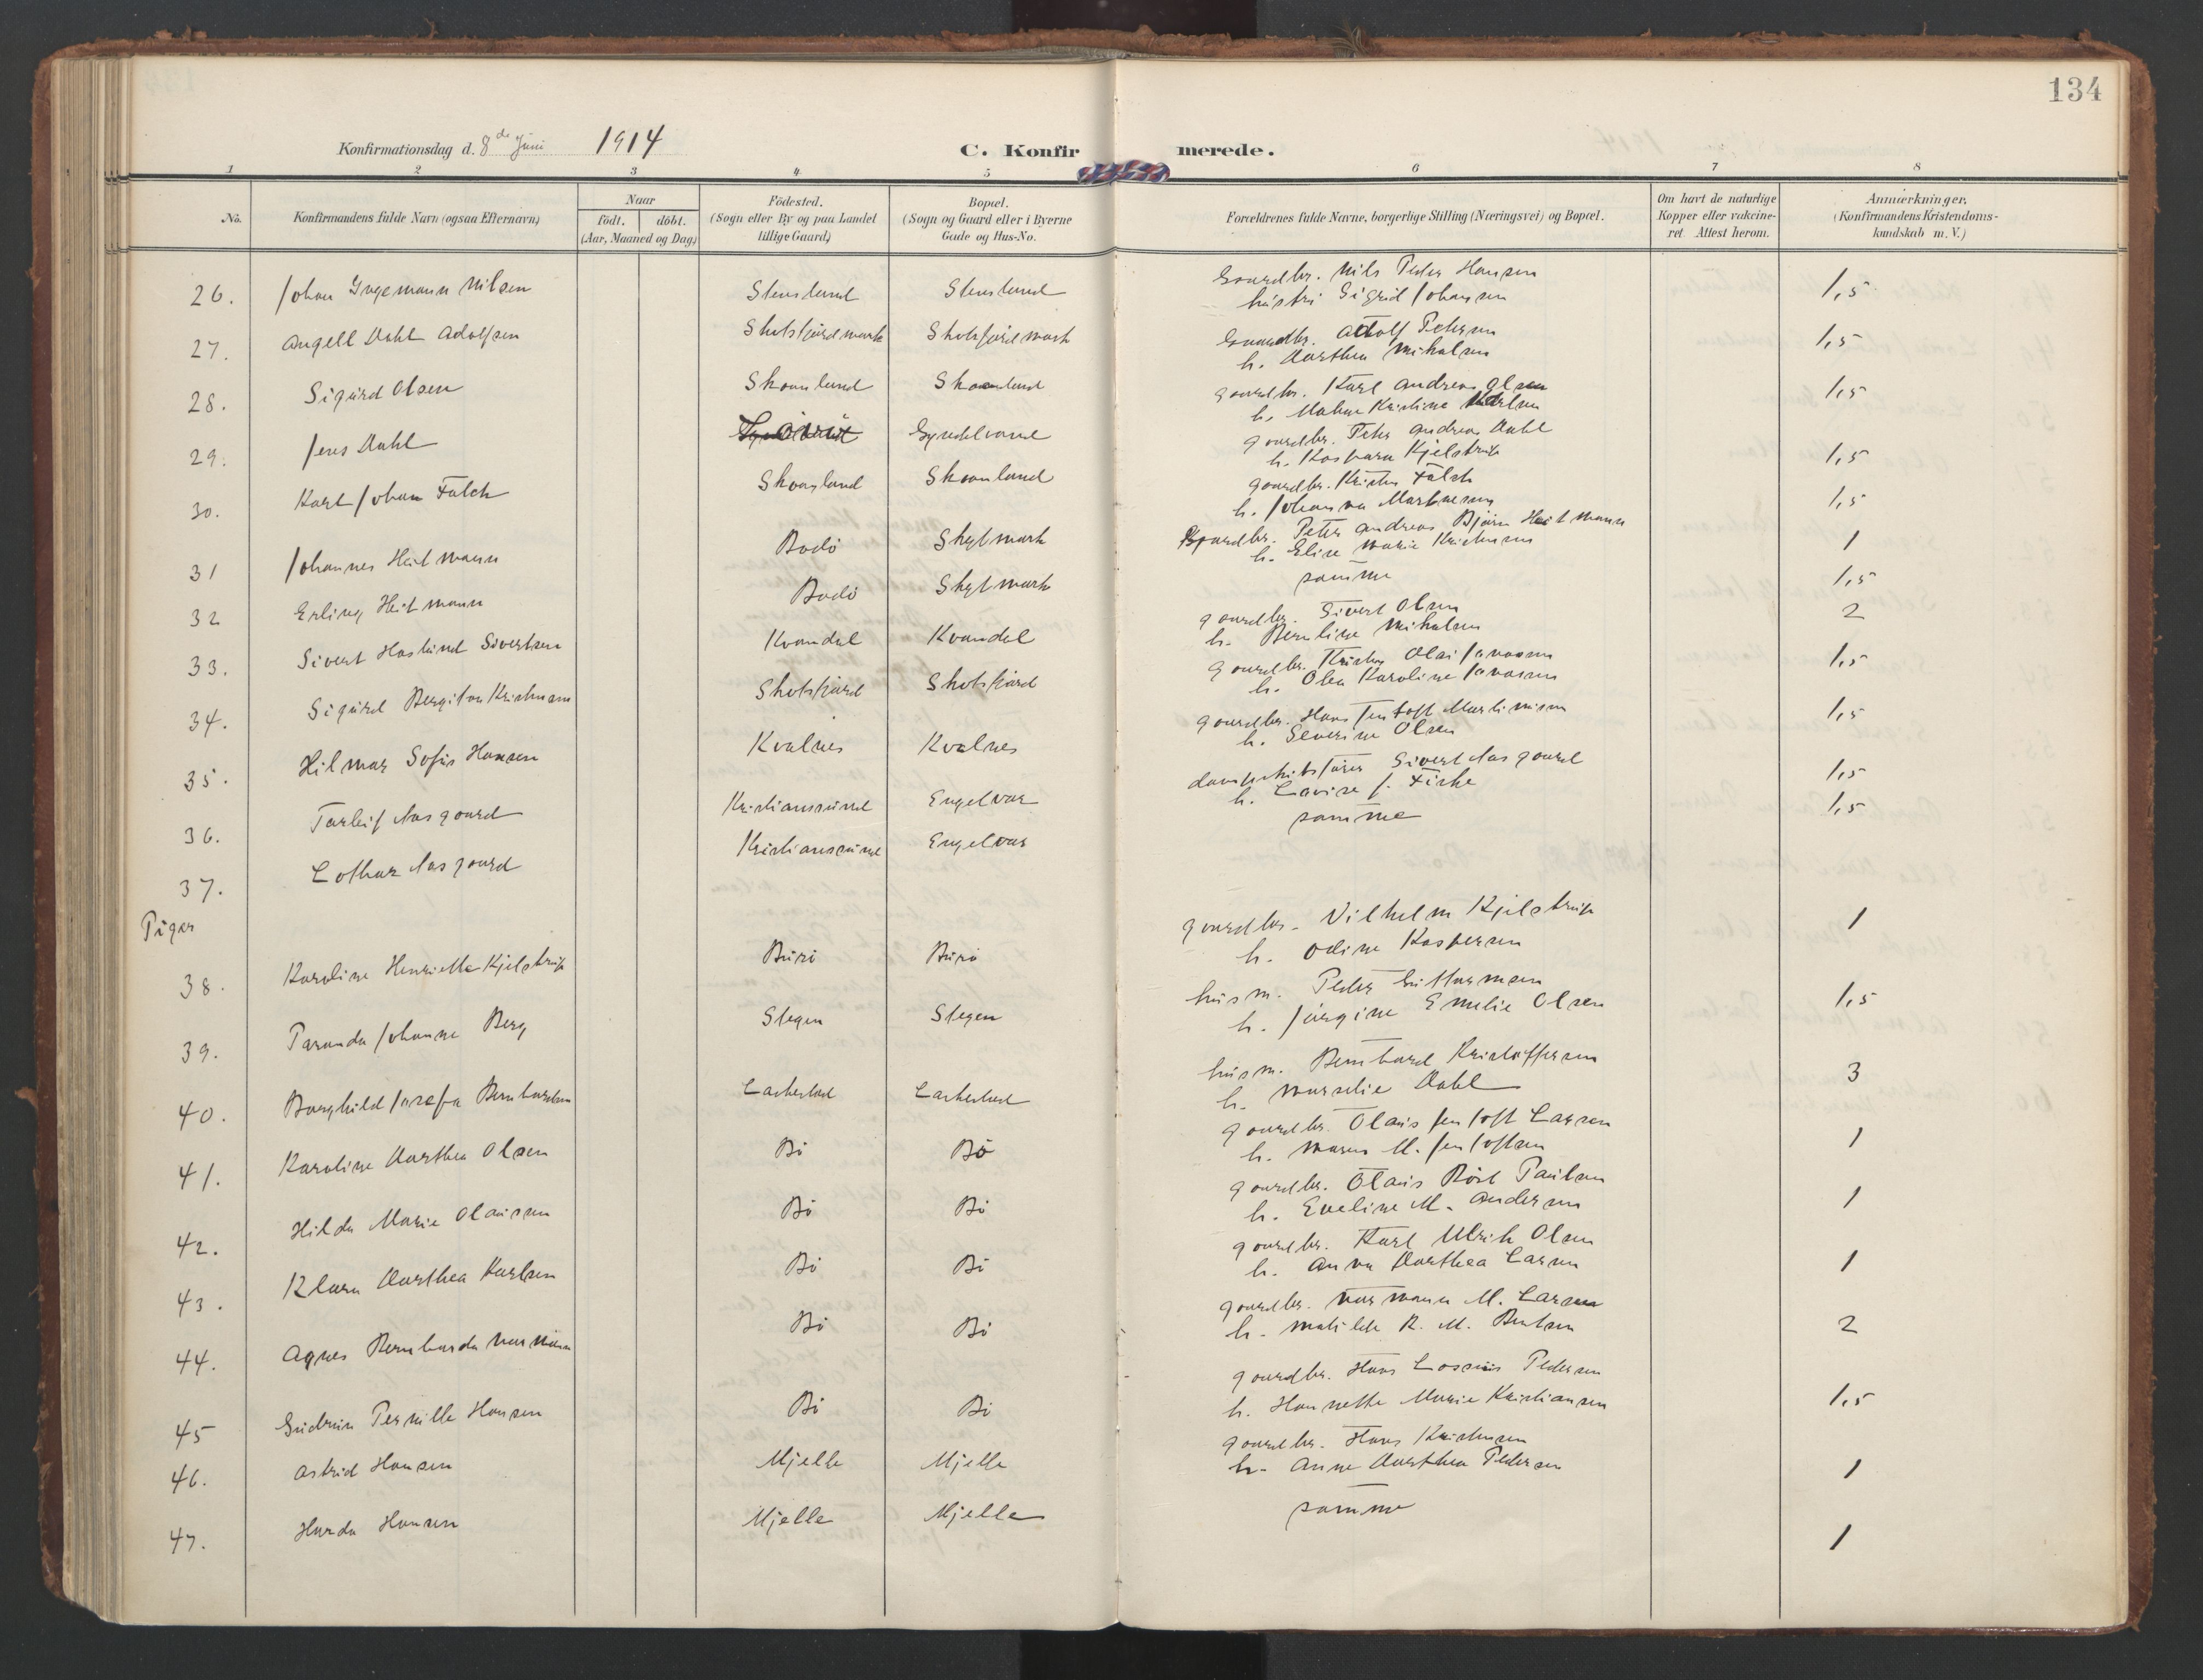 134
Konfirmationsdag d. 8de Juni 1914
C. Konfirmerede.
1 2 3 4 5 6 7 8
No.
Konfirmandens fulde Navn (ogsaa Efternavn)
Naar
födt. döbt.
(Aar, Maaned og Dag)
Födested.
(Sogn eller By og paa Landet
tillige Gaard)
Bopæl.
(Sogn og Gaard eller i Byerne
Gade og Hus-No.
Forældrenes fulde Navne, borgerlige Stilling (Næringsvei) og Bopæl.
Om havt de naturlige
Kopper eller vakcine-
ret. Attest herom.
Anmærkninger.
(Konfirmandens Kristendoms-
kundskab m. V.)
26. Johan Ingemann Nilsen Stensland Stensland Gaardbr. Nils Peder Hansen 1,5
hustri Sigrid Johansen
27. Angell Dahl Adolfsen Skotsfjordmark Skotsfjordmark Gaardbr. Adolf Petersen 1,5
h. Dorthea Mikalsen
28. Sigurd Olsen Skaanland Skaanland gaardbr. Karl Andreas Olsen 1,5
h. Kristine
29. Jens Dahl gaardbr. Peter Andreas Dahl 1,5
h. Kaspara Kjelstrup
30. Karl Johan Falch Skaanland Skaanland gaardbr. Falch 1,5
h. Johanna
31 Johannes Heitmann Bodö gaardbr. Peter Andreas Björn Heitmann 1
h. Elise Marie Kristensen
32 Erling Heitmann Bodö samme 1,5
33. Sivert Haslund Sivertsen Kvandal Kvandal gaardbr. Sivert Olsen 2
h. Mikalsen
34. Sigurd Kristensen Skotsfjord Skotsfjord gaardbr. 1,5
h. Olea Karoline
35. Hilmar Sofus Hansen Kvalnes Kvalnes gaardbr. Hans Jentoft 1,5
h. Severine Olsen
36. Torleif Aasgaard Kristianssund Engelvær Sivert Aasgaard 1,5
h. Lovise f. Fiske
37. Lothar Aasgaard Kristianssund Engelvær samme 1,5
Piger
38. Karoline Henriette Kjelstrup Burö Burö gaardbr. Vilhelm Kjelstrup 1
h. Odine Kaspersen
39. Johanne Berg Stegen Stegen husm. Peder 1,5
h. Jörgine Emelie Olsen
40. Borghild Bernhardsen Laskestad Laskestad husm. Bernhard Kristoffersen 3
h. Dahl
41. Karoline Dorthea Olsen Bö Bö gaardbr. Olaus Jentoft Larsen 1
h. Maren M. Jentoftsen
42. Hilda Marie Olaussen Bö Bö gaardbr. Olaus Röst Paulsen 1
h. Eveline M. Andersen
43. Klara Dorthea Karlsen Bö Bö gaardbr. Karl Ulrik Olsen 1
h. Anna Dorthea Larsen
44. Agnes Bernharda Normann Bö Bö gaardbr. Normann M. Larsen 2
h. Matilde R. M. Bentsen
45 Gudrun Pernille Hansen Bö Bö gaardbr. Hans Lossius Pedersen 1,5
h. Hannette Marie Kristiansen
46. Astrid Hansen Mjelle Mjelle gaardbr. Hans Kristensen 1
h. Anne Dorthea Pedersen
47. Harda Hansen Mjelle Mjelle samme 1